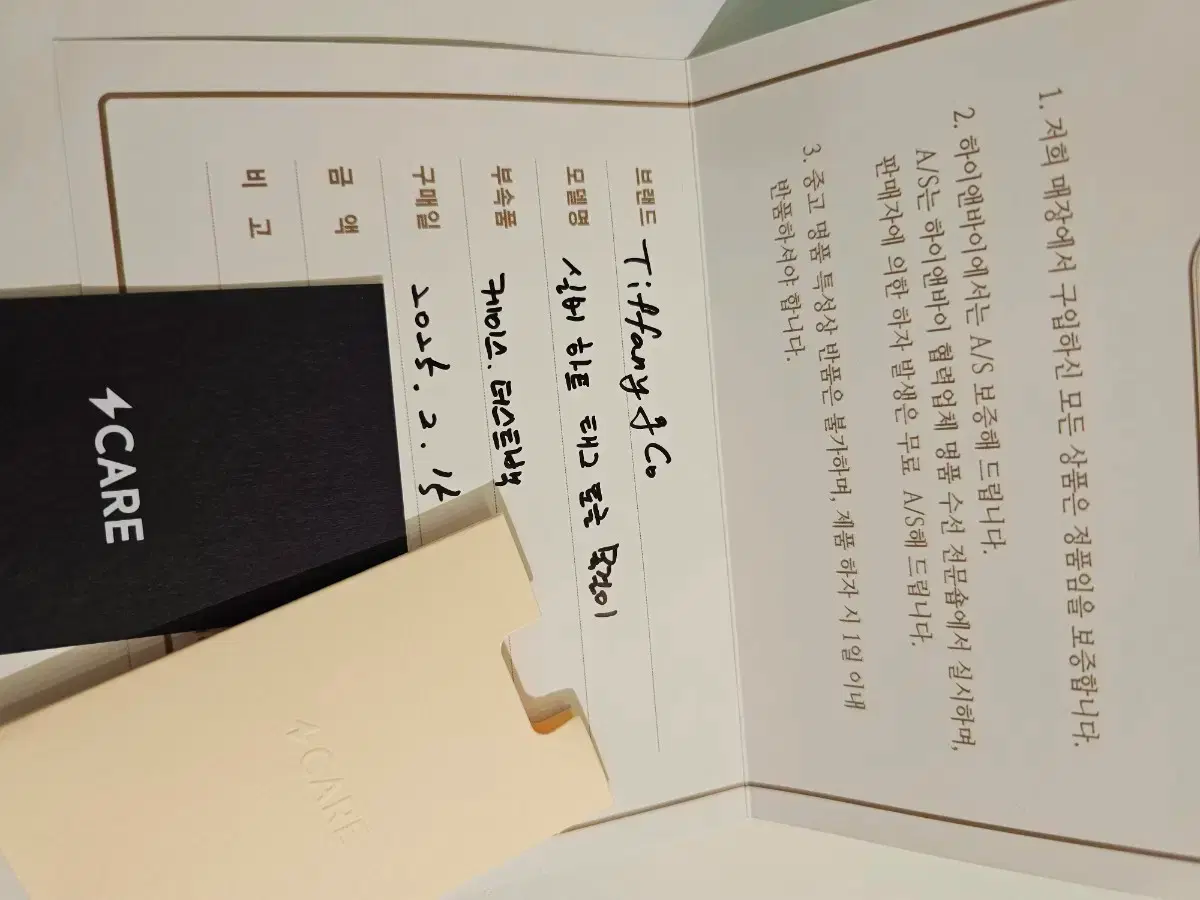 1. 저희 매장에서 구입하신 모든 상품은 정품임을 보증합니다.
2. 하이앤바이에서는 A/S 보증해 드립니다.
A/S는 하이앤바이 협력업체 명품 수선 전문숍에서 실시하며,
판매자에 의한 하자 발생은 무료 A/S해 드립니다.
3. 중고 명품 특성상 반품은 불가하며, 제품 하자 시 1일 이내
반품하셔야 합니다.
브랜드 Tiffany & Co
모델명 실버 하트 태그 토글 목걸이
부속품 케이스. 더스트백
구매일 2025. 2. 15
금 액
비 고
CARE
CARE